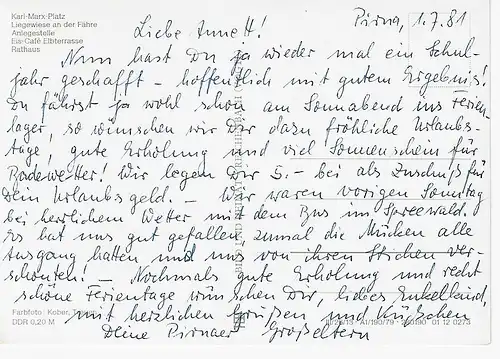 Karl-Marx-Platz
Liegewiese an der Fähre
Anlegestelle
Eis-Café Elbterrasse
Rathaus
Pirna, 1.7.81
Liebe Annett!
Nun hast Du ja wieder mal ein Schul-
jahr geschafft - hoffentlich mit gutem Ergebnis!
Du fährst ja wohl schon am Sonnabend ins Ferien-
lager, so wünschen wir Dir dazu fröhliche Urlaubs-
tage, gute Erholung und viel Sonnenschein für
Badewetter! Wir legen Dir 5.- bei als Zuschuß für
Dein Urlaubsgeld. - Wir waren vorigen Sonntag
bei herrlichem Wetter mit dem Bus im Spreewald.
Es hat uns gut gefallen, zumal die Mücken alle
Ausgang hatten und uns von ihren Stichen ver-
schonten! - Nochmals gute Erholung und recht
schöne Ferientage wünschen Dir, liebes Enkelkind,
mit herzlichen Grüßen und Küßchen
Deine Pirnaer Großeltern
Farbfoto: Kober,
DDR 0,20 M
A1/190/79 01 12 0273